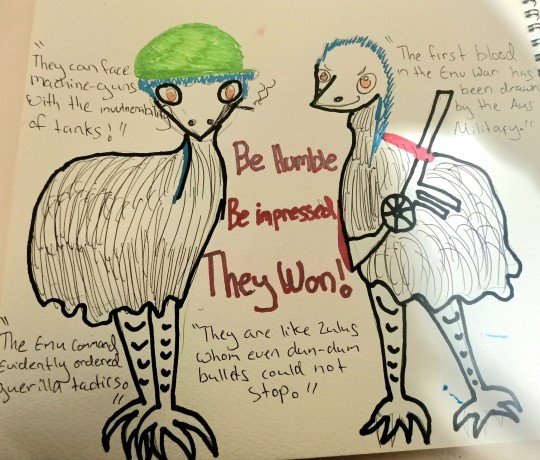 "They can face
machine-guns
with the invulnerability
of tanks!"
"The first blood
in the Emu War has
been drawn
by the Aus
Military."
Be Humble
Be impressed
They Won!
"The Emu Command
Evidently ordered
guerilla tactics."
"They are like Zulus
whom even dum-dum
bullets could not
Stop."